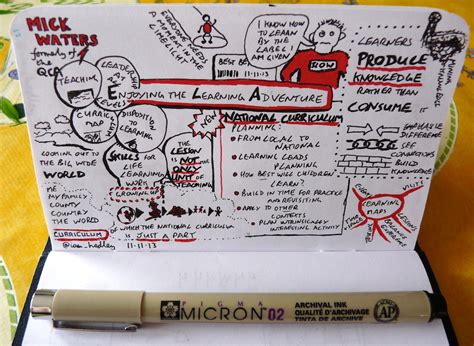 MICK
WATERS
formerly of
the
QCA
TEACHING
LEADERSHIP
AT
LEVELS
EVERYONE NEEDS
A
MOMENT IN
THE
LIMELIGHT
BEST BE
11-11-13
I KNOW HOW
TO LEARN
BY THE
LABEL I
AM GIVEN
SLOW
ENJOYING THE LEARNING ADVENTURE
CURRIC
MAP
DISPOSITION
TO LEARNING
SKILLS FOR
LIFE
LEARNING
WORK
THE
LESSON IS
NOT THE
ONLY
UNIT OF
TEACHING
NEW
NATIONAL CURRICULUM
PLANNING:
• FROM LOCAL TO
NATIONAL
• LEARNING LEADS
PLANNING
• HOW BEST WILL CHILDREN
LEARN?
• BUILD IN TIME FOR PRACTICE
AND REVISITING
• APPLY TO OTHER
CONTEXTS
• PLAN INTRINSICALLY
INTERESTING ACTIVITY
LEARNERS
PRODUCE
KNOWLEDGE
RATHER
THAN
CONSUME IT
MINING
KNOWLEDGE
EMPHASISE
DIFFERENCE
SEE
CONNECTIONS
BUILD
KNOWLEDGE
LEARNING
MAPS
VISITS
LESSONS
LOOKING OUT TO
THE BIG WIDE
WORLD
ME
MY FAMILY
COUNTY
COUNTRY
THE WORLD
GROWING UP
CURRICULUM
OF WHICH THE NATIONAL CURRICULUM
IS JUST A PART
@ian_hadley
11-11-13
PIGMA
MICRON 02
ARCHIVAL INK
QUALITÉ D'ARCHIVAGE
TINTA DE ARCHIVE
AP